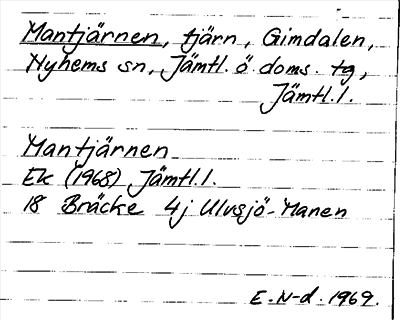 Mantjärnen, tjärn, Gimdalen,
Nyhems sn, Jämtl. ö. doms. tg,
Jämtl.l.
Mantjärnen
Ek (1968) Jämtl.l.
18 Bräcke 4j Ulvsjö-Manen
E. N-d. 1969.